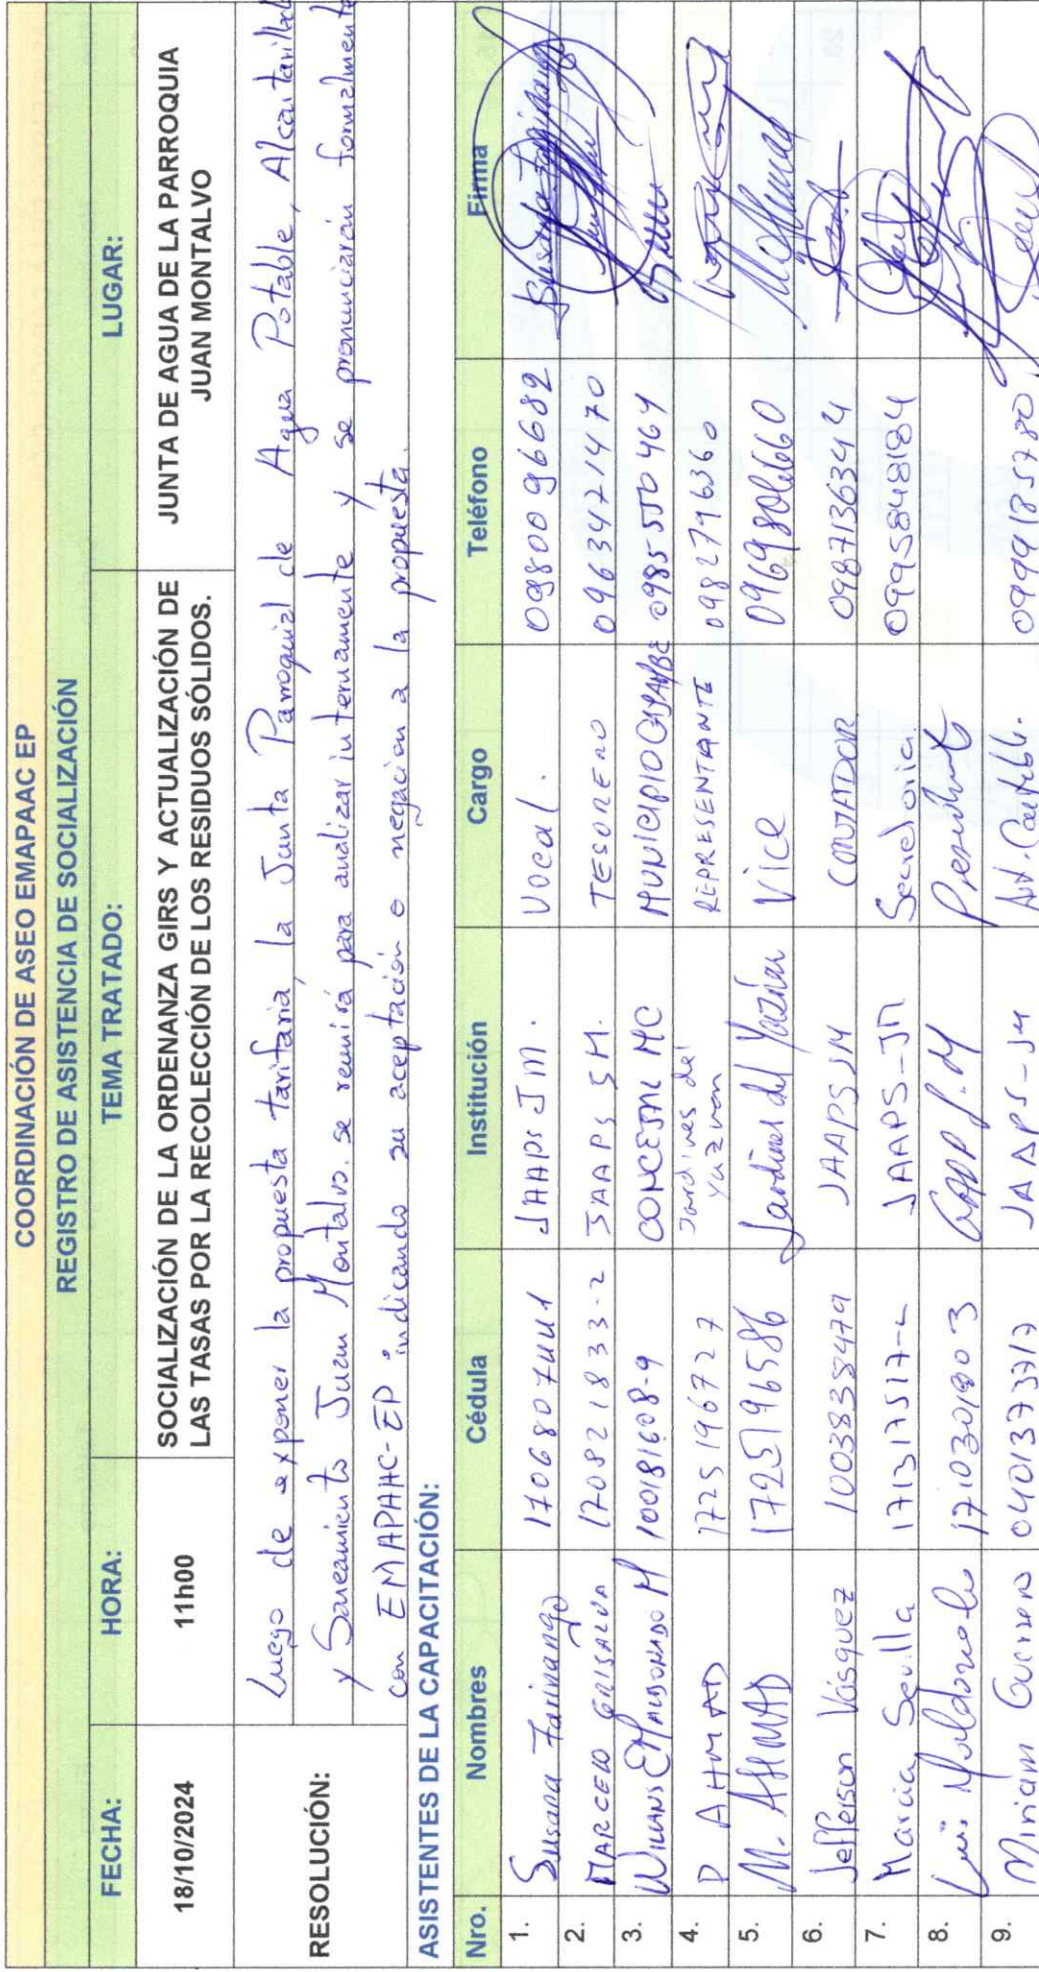 COORDINACIÓN DE ASEO EMAPAAC EP
REGISTRO DE ASISTENCIA DE SOCIALIZACIÓN
FECHA: HORA: TEMA TRATADO: LUGAR:
18/10/2024 11h00 SOCIALIZACIÓN DE LA ORDENANZA GIRS Y ACTUALIZACIÓN DE JUNTA DE AGUA DE LA PARROQUIA
LAS TASAS POR LA RECOLECCIÓN DE LOS RESIDUOS SÓLIDOS. JUAN MONTALVO
RESOLUCIÓN:
Luego de exponer la propuesta tarifaria, la Junta Parroquial de Agua Potable, Alcantarillado
y Saneamiento Juan Montalvo. se reunirá para analizar internamente y se pronunciarán formalmente
con EMAPAAC-EP indicando su aceptación o negación a la propuesta.
ASISTENTES DE LA CAPACITACIÓN:
Nro. Nombres Cédula Institución Cargo Teléfono Firma
1. Susana Farinango JAAPS JM. Vocal. 0980096682
2. MARCELO GRIJALVA 170821833-2 JAAPS JM. TESORERO 0963421470
3. WILLIANS E MALDONADO M 100181608-9 CONCEJAL MC MUNICIPIO CAYAMBE 0985550464
4. P AHMAD 1725196727 Jardines de Yaznan REPRESENTANTE 0982796360
5. M. AHMAD 1725196586 Jardines del Yaznan Vice
6. Jefferson Vásquez 1003835479 JAAPS JM CONTADOR 0987136344
7. Marcia Sevilla JAAPS-JM Secretaria 0995848184
8. Luis Maldonado 1710301803 GADP J.M Presidente
9. Miriam Guerrero 0401373717 JAAPS-JM 0999185780